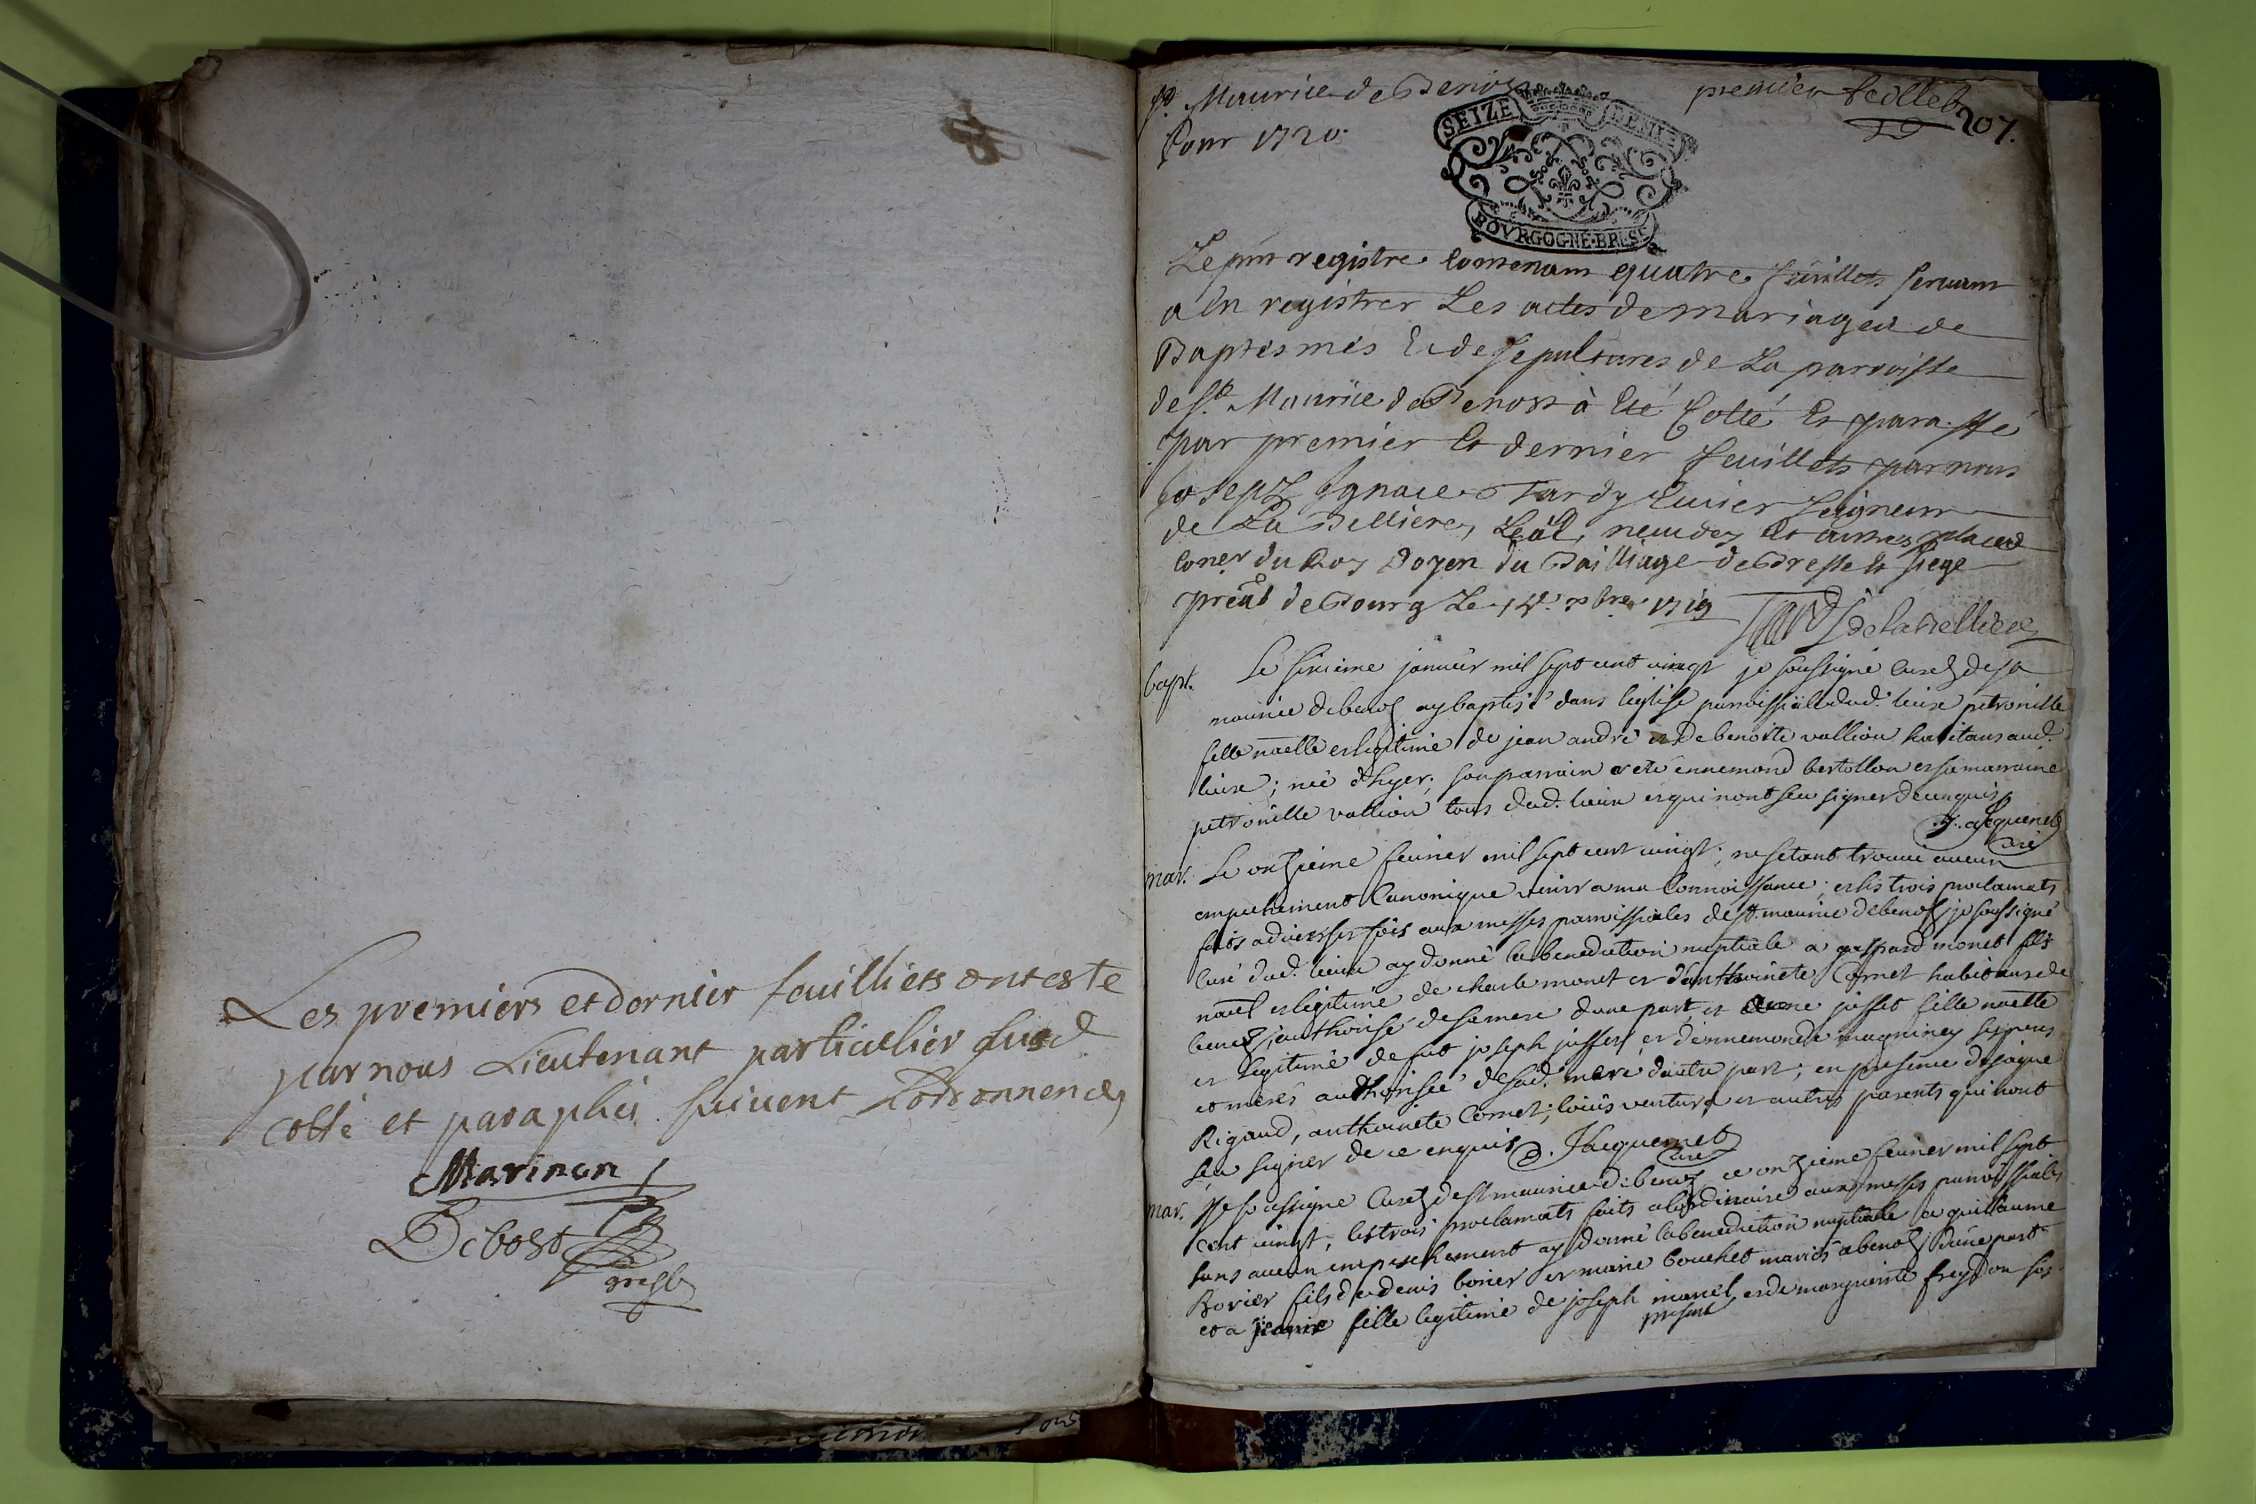 Les premiers et dernier feuilliets ont este
par nous Lieutenant particulier susd
cotté et paraphés suivent Lordonnence
Marinon
Debost
gresf
St Maurice de Benost
premier feollet
207.
Pour 1720
SEIZE DENIERS
BOVRGOGNE·BRESSE
Le pnt registre Contenant quatre feuillets servant
a En registrer Les actes de mariages de
Baptesmes Et de sepultures de La parroisse
de St. Maurice de Benost à Eté Cotté Et paraffé
par premier Et dernier feuillets par nous
Joseph Ignace Tardy Ecuier Seigneur
de La Belliere, Leal, neudey Et autres places
Coner du Roy Doyen du Bailliage de Bresse Et siege
preal de Bourg Le 14e xbre 1719
Tardy de la belliere
bapt.
Le sixieme janvier mil sept cent vingt je soussigné curé de st
maurice de benost ay baptisé dans leglise parroissialle dud. lieu petronille
fille naelle et legitime de jean andré et de benoite vallion habitans aud.
lieu ; née dhyer ; son parrain a eté ennemond bertollon et sa marraine
petronille vallion tous dud. lieu et qui nont seu signer de ce enquis
J. Jacquemet
Curé
mar.
Le onzieme fevrier mil sept cent vingt ; ne setant trouvé aucun
empechement Canonique venir a ma Connoissance ; et les trois proclamats
faits a diverses fois aux messes parroissiales de st. maurice de benost, je soussigné
Curé dud. lieu ay donné la benediction nuptiale a gaspard monet fils
nael et legitime de charle monet et danthoinete Cornet habitans de
benost, authorisé de sa mere dune part, et a jusset fille naelle
et legitime de fut joseph jusset et dennemonde magniney ses peres
et meres authorisée de sad. mere dautre part ; en presence de
Rigaud, anthoinete Cornet ; louis ventura et autres parents qui nont
seu signer de ce enquis J. Jacquemet
Curé
mar.
Je soussigné Curé de st maurice de benost, ce onzieme fevrier mil sept
cent vingt, les trois proclamats faits a lordinaire aux messes parroissiales
sans aucun empeschement ay donné la benediction nuptiale a guillaume
Borier fils de denis borier et marie bouchet mariés a benost, dune part
et a jeanne fille legitime de joseph morel et de marguerite freydon ses
present